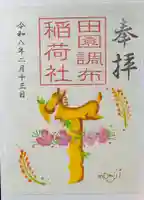 奉拝
田園調布
稲荷社
令和八年二月十三日